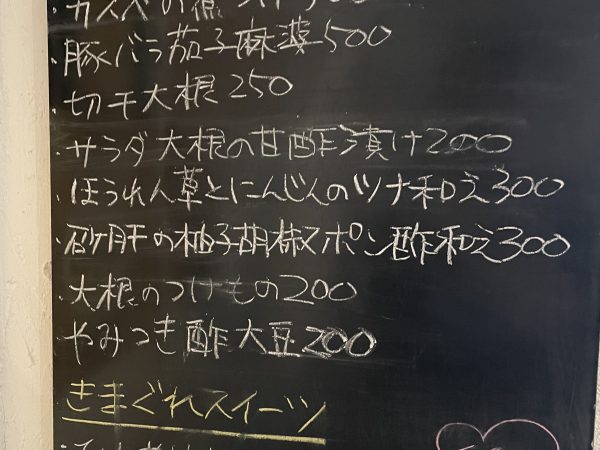 ・豚バラ茄子麻婆500
・切干大根250
・サラダ大根の甘酢漬け200
・ほうれん草とにんじんのツナ和え300
・砂肝の柚子胡椒ポン酢和え300
・大根のつけもの200
やみつき酢大豆200
きまぐれスイーツ